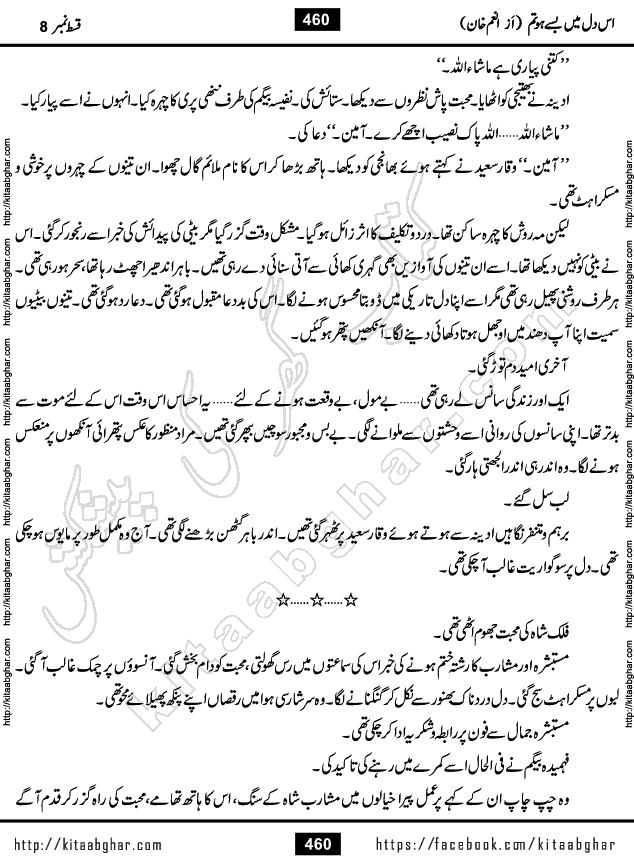 اس دل میں بسے ہو تم (از انعم خان)
460
قسط نمبر 8
’’کتنی پیاری ہے ماشاء اللہ۔‘‘
ادینہ نے بھتیجی کو اٹھایا۔ محبت پاش نظروں سے دیکھا۔ ستائش کی۔ نفیسہ بیگم کی طرف ننھی پری کا چہرہ کیا۔ انہوں نے اسے پیار کیا۔
’’ماشاء اللہ...... اللہ پاک نصیب اچھے کرے۔ آمین۔‘‘ دعا کی۔
’’آمین۔‘‘ وقار سعید نے کہتے ہوئے بھانجی کو دیکھا۔ ہاتھ بڑھا کر اس کا نام ملائم گال چھوا۔ ان تینوں کے چہروں پر خوشی و
مسکراہٹ تھی۔
لیکن مہ روش کا چہرہ ساکن تھا۔ درد و تکلیف کا اثر زائل ہو گیا۔ مشکل وقت گزر گیا مگر بیٹی کی پیدائش کی خبر اسے رنجور کر گئی۔ اس
نے بیٹی کو نہیں دیکھا تھا۔ اسے ان تینوں کی آوازیں بھی گہری کھائی سے آتی سنائی دے رہی تھیں۔ باہر اندھیرا چھٹ رہا تھا، سحر ہو رہی تھی۔
ہر طرف روشنی پھیل رہی تھی مگر اسے اپنا دل تاریکی میں ڈوبتا محسوس ہونے لگا۔ اس کی بددعا مقبول ہو گئی تھی۔ دعا رد ہو گئی تھی۔ تینوں بیٹیوں
سمیت اپنا آپ دھند میں اوجھل ہوتا دکھائی دینے لگا۔ آنکھیں پتھر ہو گئیں۔
آخری امید دم توڑ گئی۔
ایک اور زندگی سانس لے رہی تھی...... بے مول، بے وقعت ہونے کے لئے...... یہ احساس اس وقت اس کے لئے موت سے
بدتر تھا۔ اپنی سانسوں کی روانی اسے وحشتوں سے ملوانے لگی۔ بے بس و مجبور سوچیں بپھر گئی تھیں۔ مراد منظور کا عکس پتھرائی آنکھوں پر منعکس
ہونے لگا۔ وہ اندر ہی اندر الجھتی ہار گئی۔
لب سل گئے۔
برہم و متنفر نگاہیں ادینہ سے ہوتے ہوئے وقار سعید پر ٹھہر گئی تھیں۔ اندر باہر گھٹن بڑھنے لگی تھی۔ آج وہ مکمل طور پر مایوس ہو چکی
تھی۔ دل پر سوگواریت غالب آ چکی تھی۔
☆......☆......☆
فلک شاہ کی محبت جھوم اٹھی تھی۔
مستبشرہ اور مشارب کا رشتہ ختم ہونے کی خبر اس کی سماعتوں میں رس گھولتی، محبت کو دوام بخش گئی۔ آنسوؤں پر چمک غالب آ گئی۔
لبوں پر مسکراہٹ سج گئی۔ دل دردناک بھنور سے نکل کر گنگنانے لگا۔ وہ سرشار سی ہوا میں رقصاں اپنے پنکھ پھیلائے محو تھی۔
مستبشرہ جمال سے فون پر رابطہ و شکریہ ادا کر چکی تھی۔
فہمیدہ بیگم نے فی الحال اسے کمرے میں رہنے کی تاکید کی۔
وہ چپ چاپ ان کے کہے پر عمل پیرا خیالوں میں مشارب شاہ کے سنگ، اس کا ہاتھ تھامے، محبت کی راہ گزر کر قدم آگے
http://kitaabghar.com
460
https://facebook.com/kitaabghar
http://kitaabghar.com
http://kitaabghar.com
http://kitaabghar.com
http://kitaabghar.com
http://kitaabghar.com
http://kitaabghar.com
http://kitaabghar.com
http://kitaabghar.com
http://kitaabghar.com
http://kitaabghar.com
http://kitaabghar.com
http://kitaabghar.com
کتاب گھر کی پیشکش
kitaabghar.com